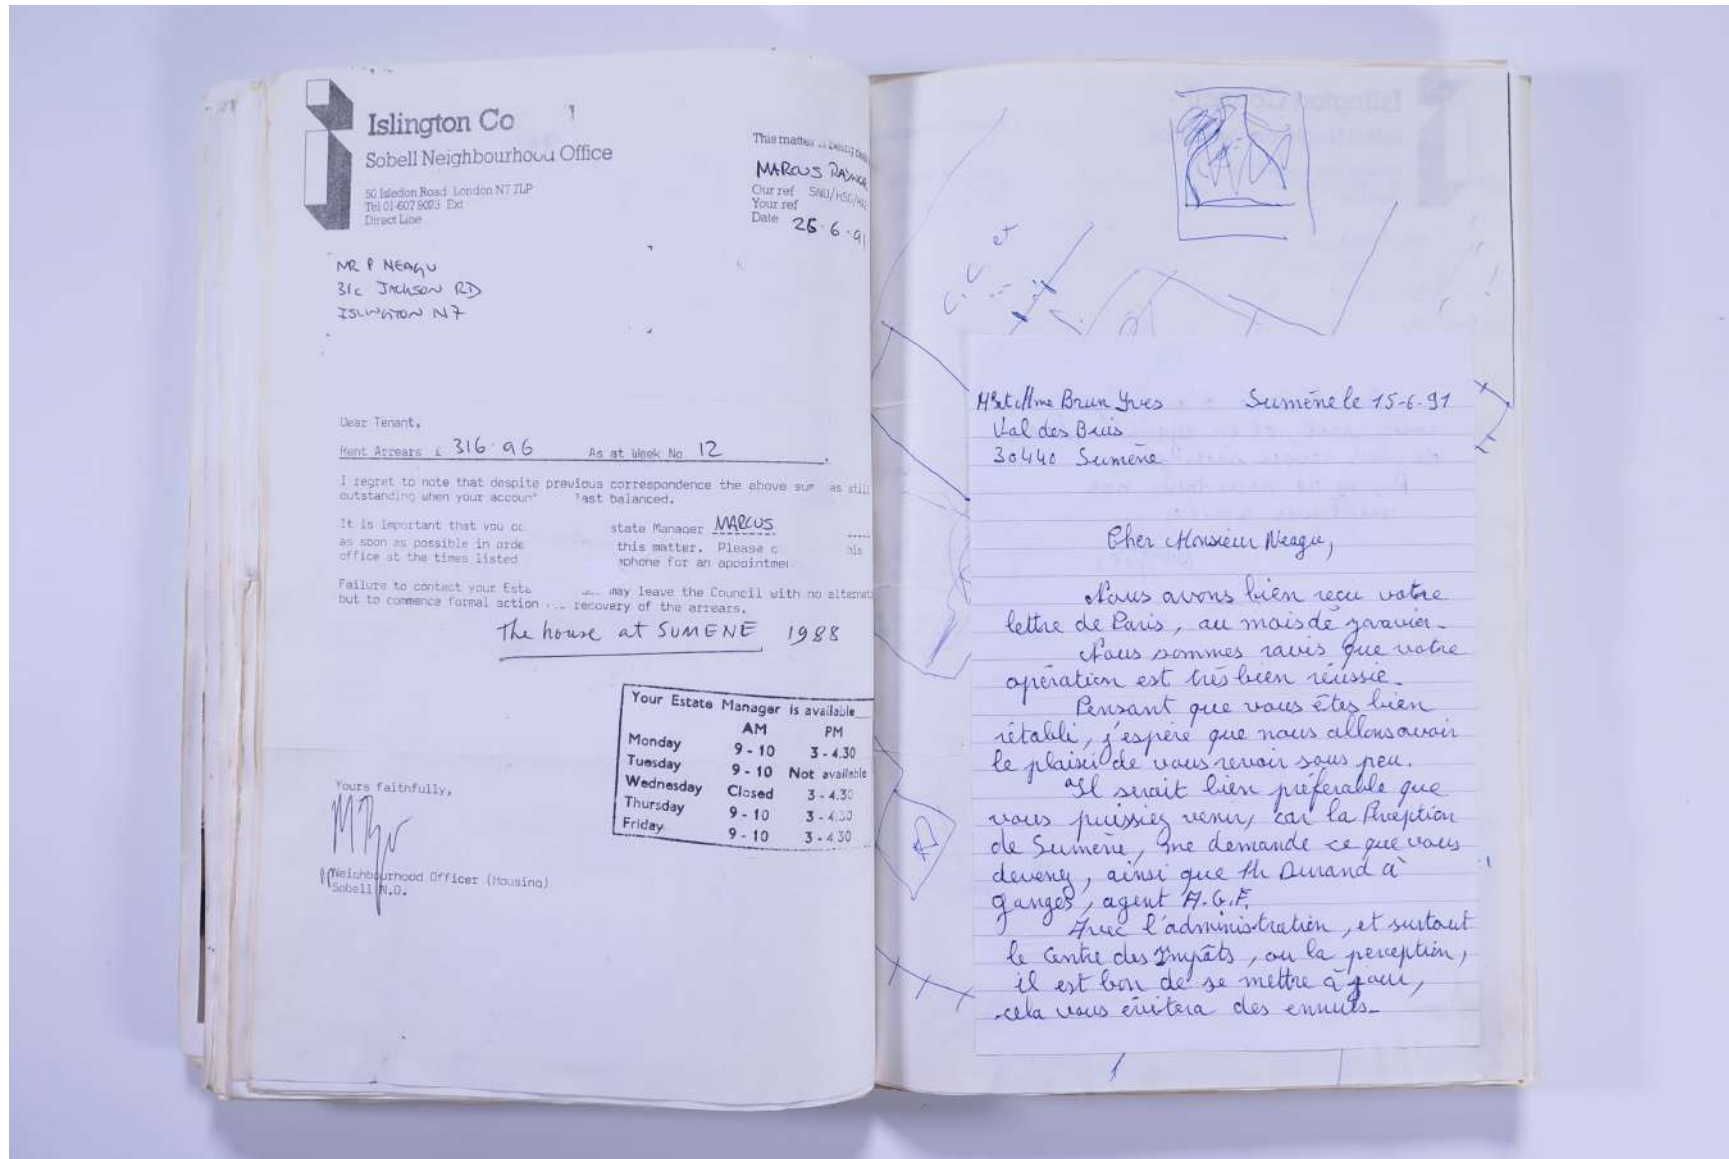 Islington Co
Sobell Neighbourhood Office
50 Isledon Road London N7 7LP
Tel 01-607 9023 Ext
Direct Line
This matter is being
MARCUS RAYNOR
Our ref SNO/HSG/
Your ref
Date 26·6·91
MR P NEAGU
31c JACKSON RD
ISLINGTON N7
Dear Tenant,
Rent Arrears £ 316·96 As at Week No 12
I regret to note that despite previous correspondence the above sum as still
outstanding when your account last balanced.
It is important that you state Manager MARCUS
as soon as possible in orde this matter. Please c his
office at the times listed phone for an appointmen
Failure to contact your Esta may leave the Council with no alternat
but to commence formal action recovery of the arrears.
The house at SUMENE 1988
Your Estate Manager is available
AM PM
Monday 9 - 10 3 - 4.30
Tuesday 9 - 10 Not available
Wednesday Closed 3 - 4.30
Thursday 9 - 10 3 - 4.30
Friday 9 - 10 3 - 4.30
Yours faithfully,
Neighbourhood Officer (Housing)
Sobell N.O.
Mr et Mme Brun Yves Sumène le 15-6-91
Val des Buis
30440 Sumène
Cher Monsieur Neagu,
Nous avons bien reçu votre
lettre de Paris, au mois de janvier.
Nous sommes ravis que votre
opération est très bien réussie.
Pensant que vous êtes bien
rétabli, j'espère que nous allons avoir
le plaisir de vous revoir sous peu.
Il serait bien préférable que
vous puissiez venir, car la Perception
de Sumène, me demande ce que vous
devenez, ainsi que Mr Durand à
Ganges, agent A.G.F.
Avec l'administration, et surtout
le Centre des Impôts, ou la perception,
il est bon de se mettre à jour,
cela vous évitera des ennuis.